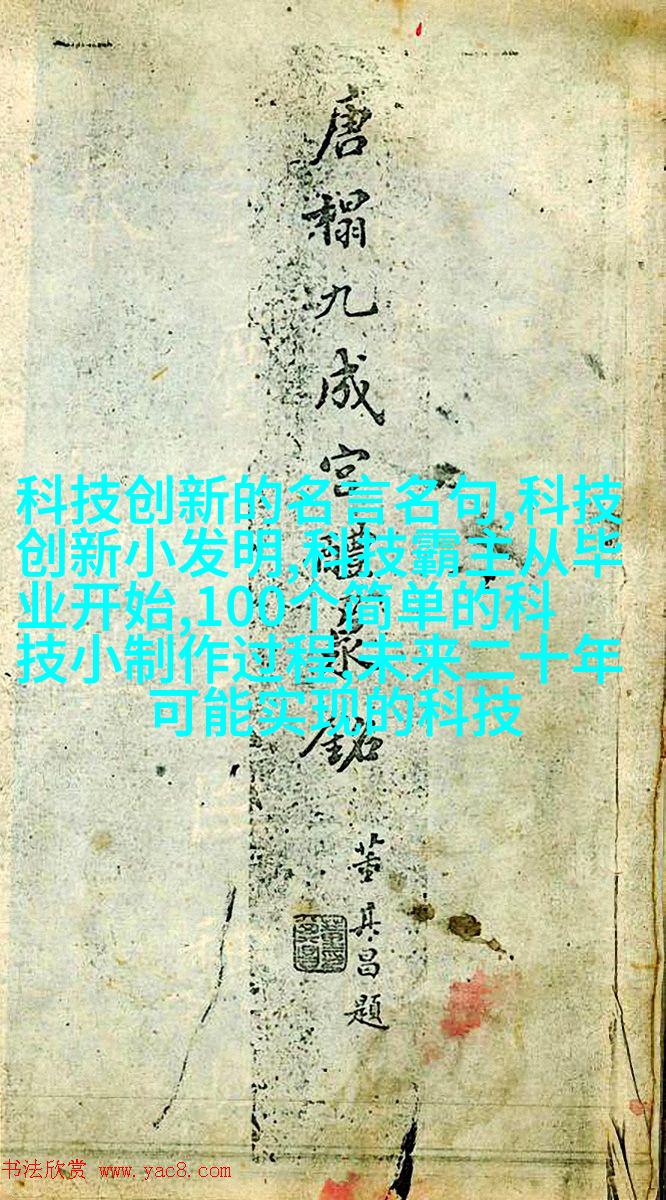 唐榻九成宫醴泉銘
董其昌題
科技创新的名言名句,科技
创新小发明,科技霸主从毕
业开始,100个简单的科
技小制作过程,未来二十年
可能实现的科技
书法欣赏 www.yac8.com